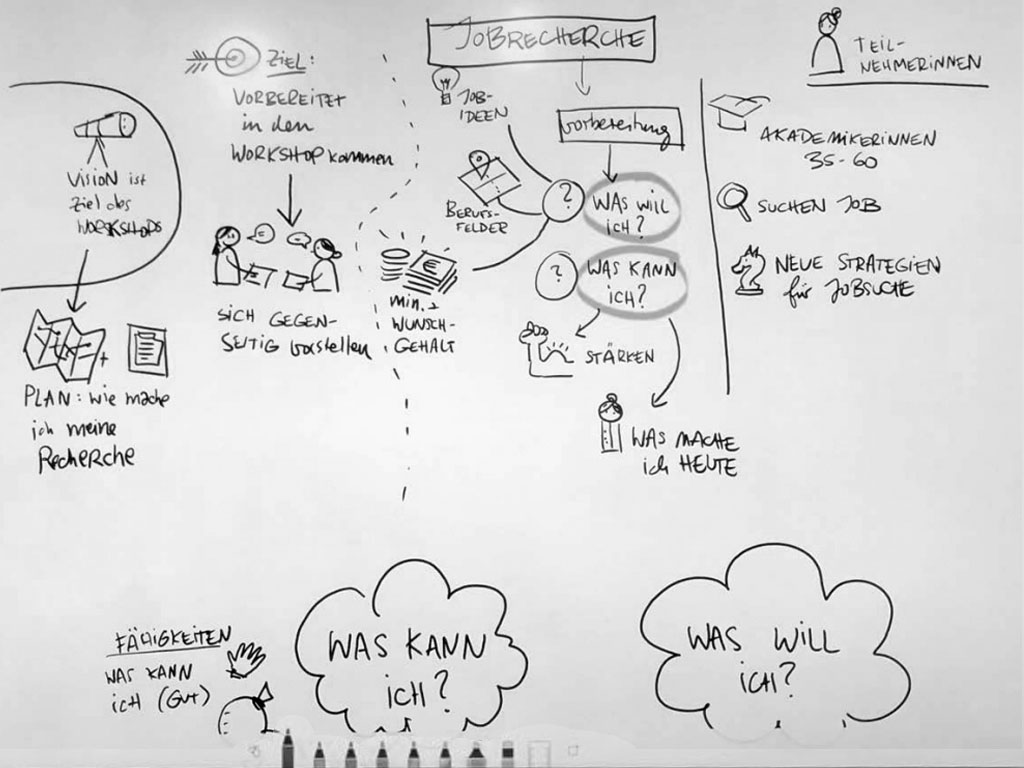 JOBRECHERCHE
TEIL-
NEHMERINNEN
ZIEL:
VORBEREITET
in den
WORKSHOP kommen
SICH GEGEN-
SEITIG vorstellen
VISION ist
Ziel des
WORKSHOPS
PLAN: wie mache
ich meine
Recherche
JOB-
IDEEN
BERUFS-
FELDER
min. +
WUNSCH-
GEHALT
vorbereitung
?
WAS WILL
ICH?
?
WAS KANN
ICH?
STÄRKEN
WAS MACHE
ich HEUTE
AKADEMIKERINNEN
35-60
SUCHEN JOB
NEUE STRATEGIEN
für JOBSUCHE
FÄHIGKEITEN
WAS KANN
ich (GUT)
WAS KANN
ICH?
WAS WILL
ICH?